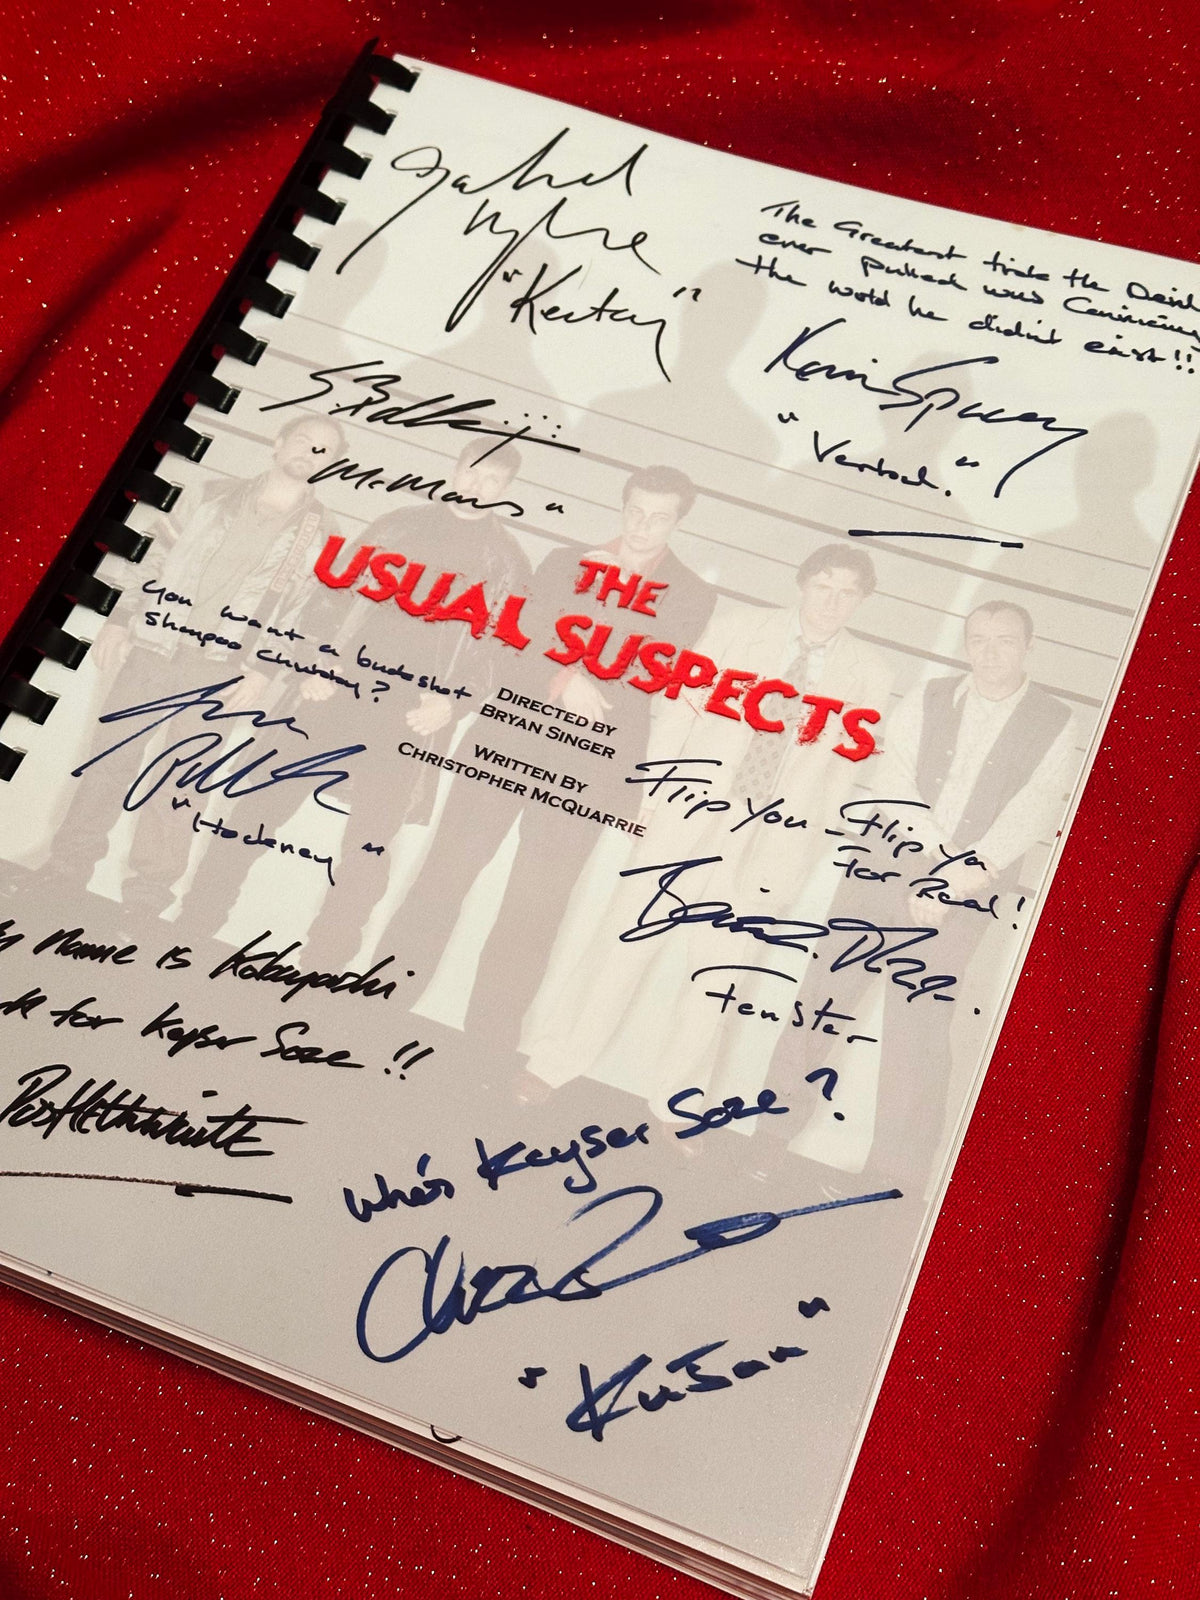 Gabriel
Byrne
"Keaton"
The Greatest trick the Devil
ever pulled was Convincing
the world he didn't exist!!
Kevin Spacey
"Verbal."
S. Baldwin
"McManus"
THE
USUAL SUSPECTS
You want a buckshot
Shampoo Chubby?
DIRECTED BY
BRYAN SINGER
WRITTEN BY
CHRISTOPHER MCQUARRIE
"Hockney"
Flip You - Flip Ya
For Real!
Fenster
name is Kobayashi
for Keyser Soze!!
Postlethwaite
Who's Keyser Soze?
"Kujan"